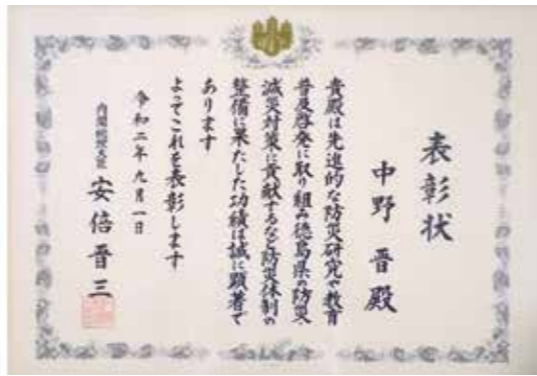 表彰状
中野 晋 殿
貴殿は先進的な防災研究や教育
普及啓発に取り組み徳島県の防災・
減災対策に貢献するなど防災体制の
整備に果たした功績は誠に顕著で
あります
よってこれを表彰します
令和二年九月一日
内閣総理大臣 安倍晋三